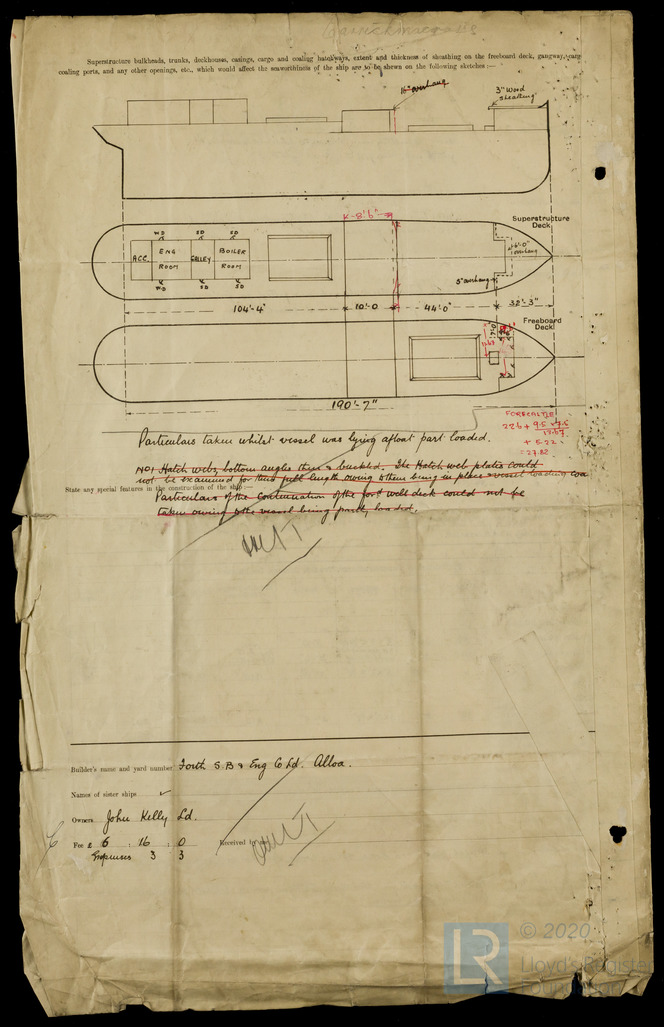 Superstructure bulkheads, trunks, deckhouses, casings, cargo and coaling hatchways, extent and thickness of sheathing on the freeboard deck, gangway, cargo
coaling ports, and any other openings, etc., which would affect the seaworthiness of the ship are to be shewn on the following sketches:—
overhang
3" Wood
sheathing
K-8'.6"-
Superstructure
Deck
WD SD SD
ACC. ENG ROOM GALLEY BOILER ROOM
WD SD SD
overhang
5" overhang
104'-4" 10'-0 44'-0" 32'-3"
Freeboard
Deck
190'-7"
FORECASTLE
Particulars taken whilst vessel was lying afloat part loaded.
+ 5.22
= 27.82
NO1 Hatch webs bottom angles thin & buckled. The Hatch web plates could
not be examined for their full length owing to them being in place & vessel loading coa
State any special features in the construction of the ship:—
Particulars of the continuation of the ford well deck could not be
taken owing to the vessel being partly loaded.
Builder's name and yard number Forth S B & Eng Co Ld. Alloa.
Names of sister ships
Owners John Kelly Ld.
Fee £ 6 : 16 : 0 Received by
Expenses 3 3
LR
© 2020
Lloyd's Register
Foundation